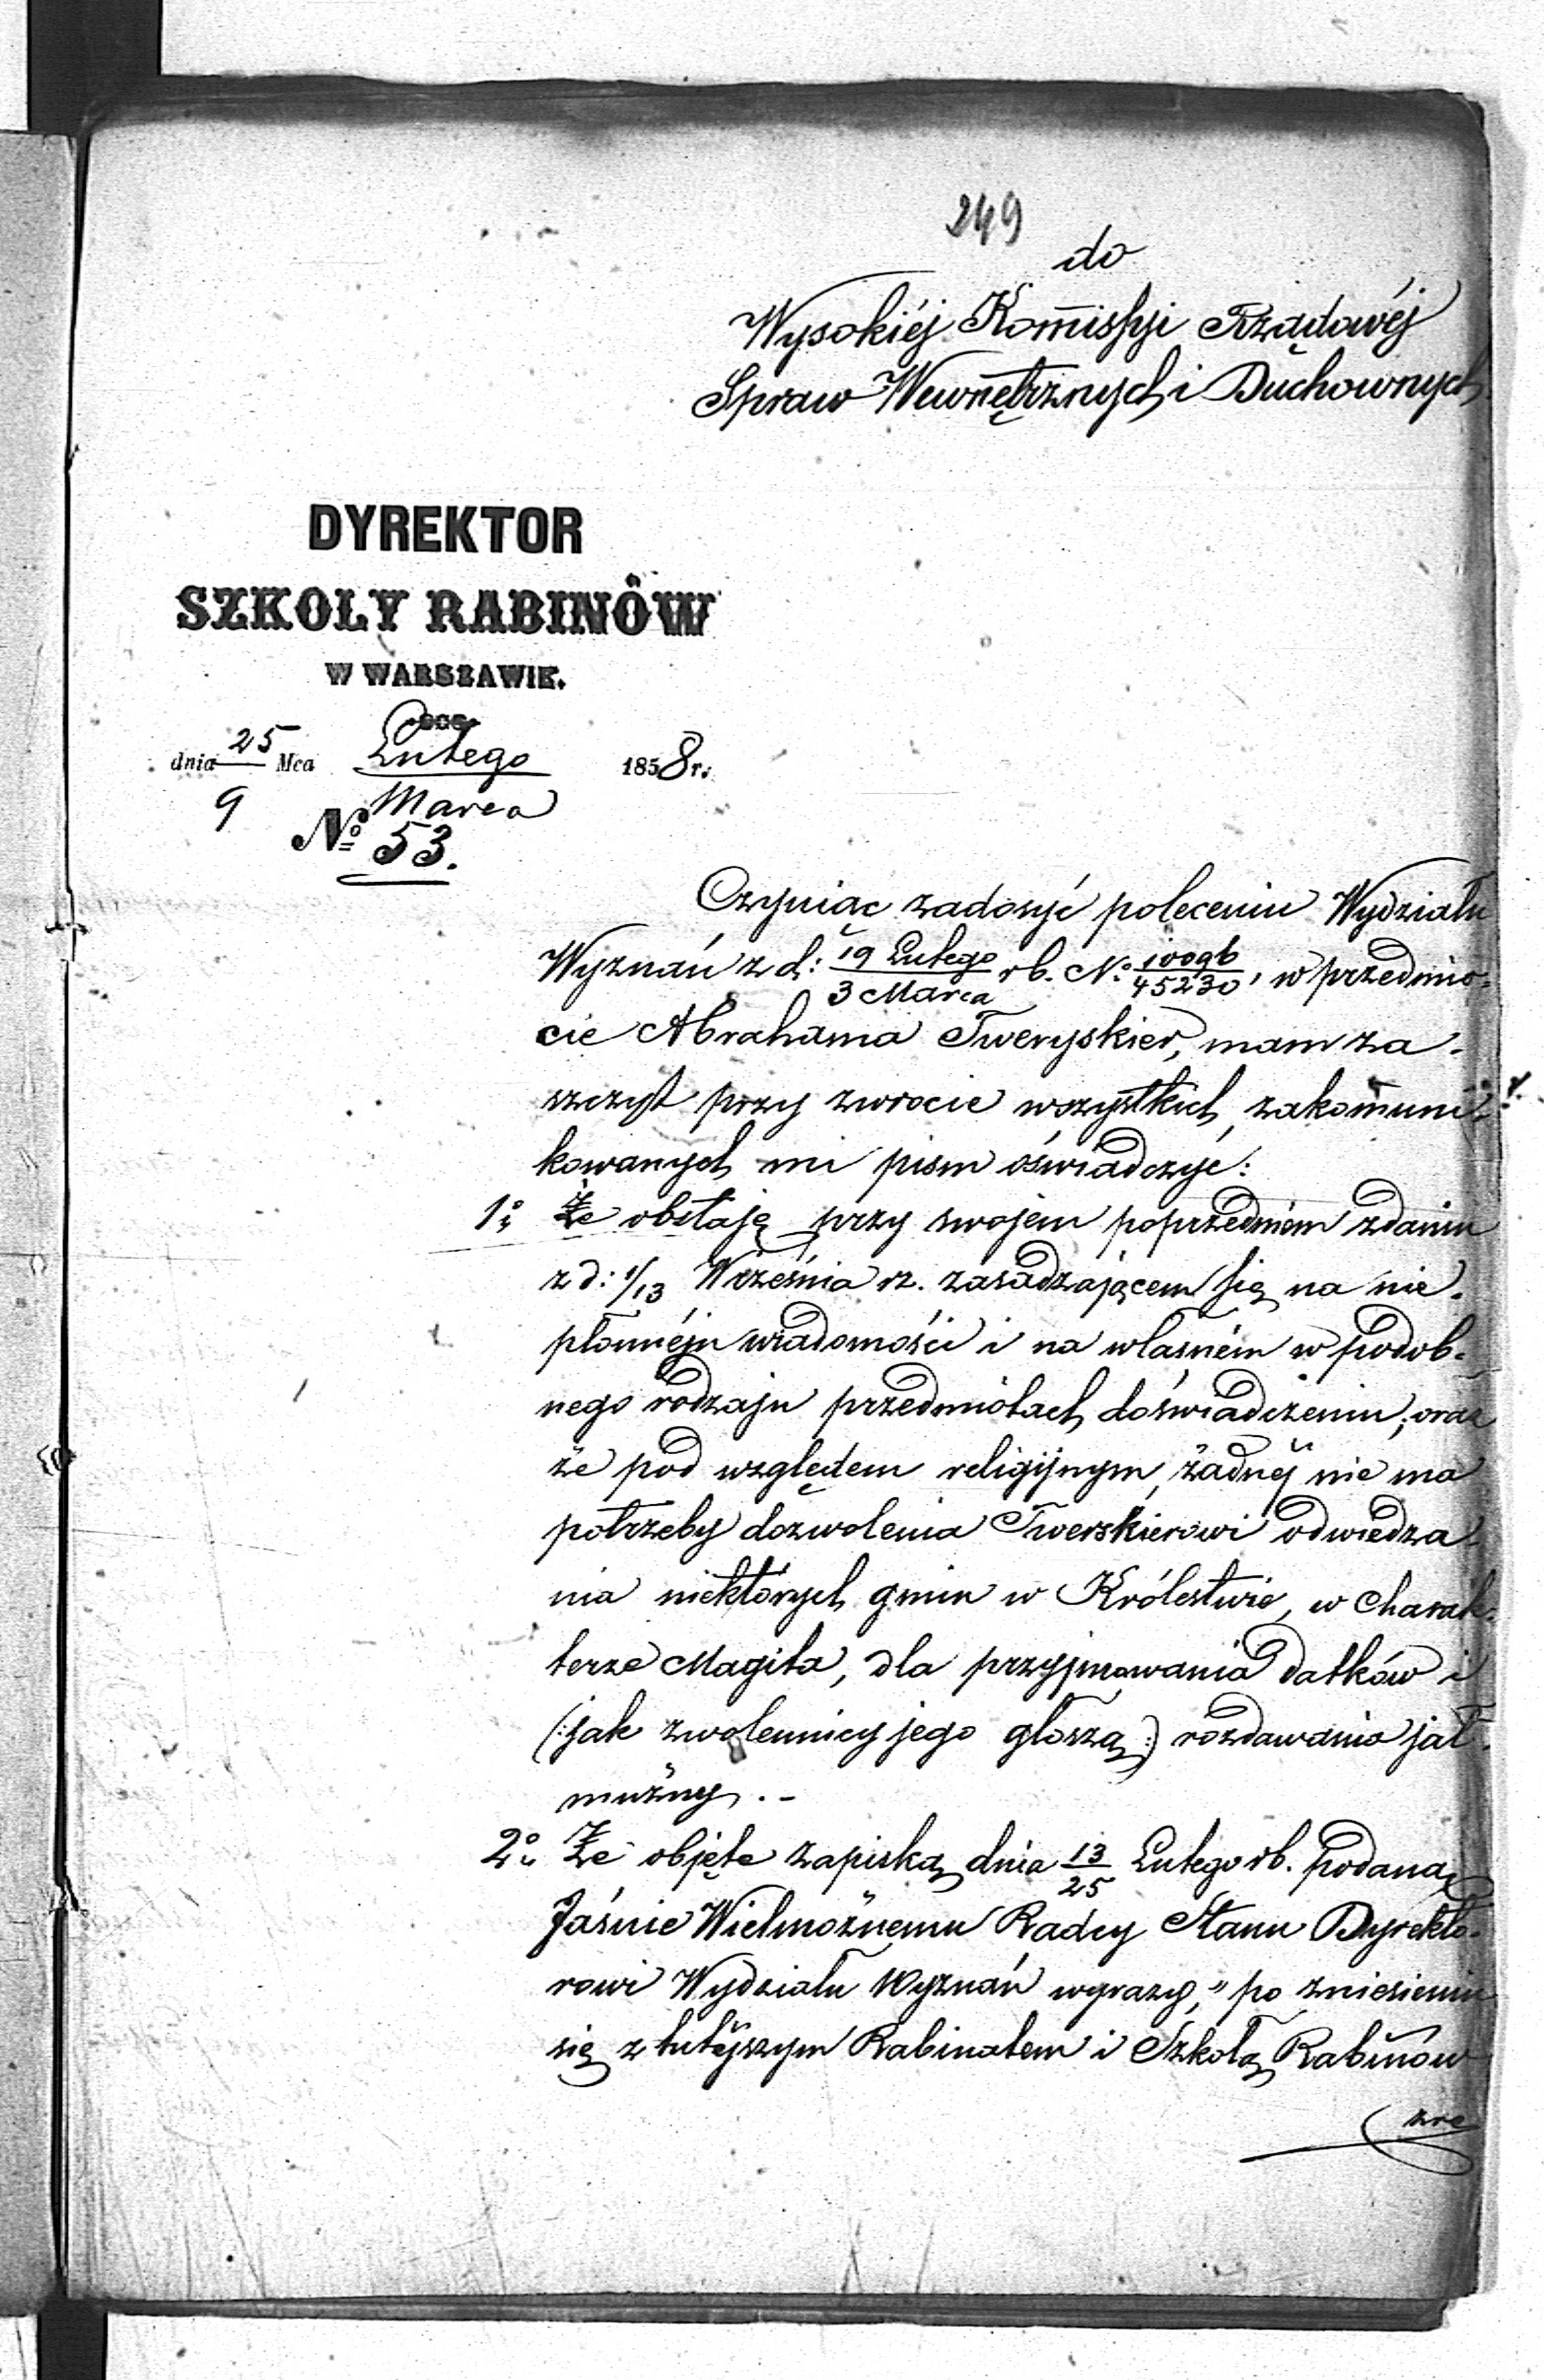 249
do
Wysokiéj Kom̅issyi Rządowéj
Spraw Wewnętrznych i Duchownych
DYREKTOR
SZKOLY RABINÓW
W WARSZAWIE.
dnia 25/9 Mca Lutego/Marca 1858 r.
No 53.
Czyniąc zadosyć poleceniu Wydziału
Wyznań z d: 19 Lutego/3 Marca rb. No 10096/45230, w przedmio-
cie Abrahama Tweryskier, mam za-
szczyt przy zwrocie wszystkich zakom̅uni-
kowanych mi pism oświadczyć:
1o Że obstaję przy swojem poprzedniem zdaniu
z d: 1/13 Września rz. zasadzającem się na nie-
płonnéj wiadomości i na własném w podob-
nego rodzaju przedmiotach doświadczeniu; oraz
że pod względem religijnym, żadnéj nie ma
potrzeby dozwolenia Twerskierowi odwiedza-
nia niektórych gmin w Królestwie, w charak-
terze Magita, dla przyjmowania datków i
(:jak zwolennicy jego głoszą:) rozdawania jał-
mużny.-
2o Że objęte zapiską dnia 13/25 Lutego rb. podaną
Jaśnie Wielmożnemu Radcy Stanu Dyrekto-
rowi Wydziału Wyznań wyrazy, "po zniesieniu
się z tutéjszym Rabinatem i Szkołą Rabinów